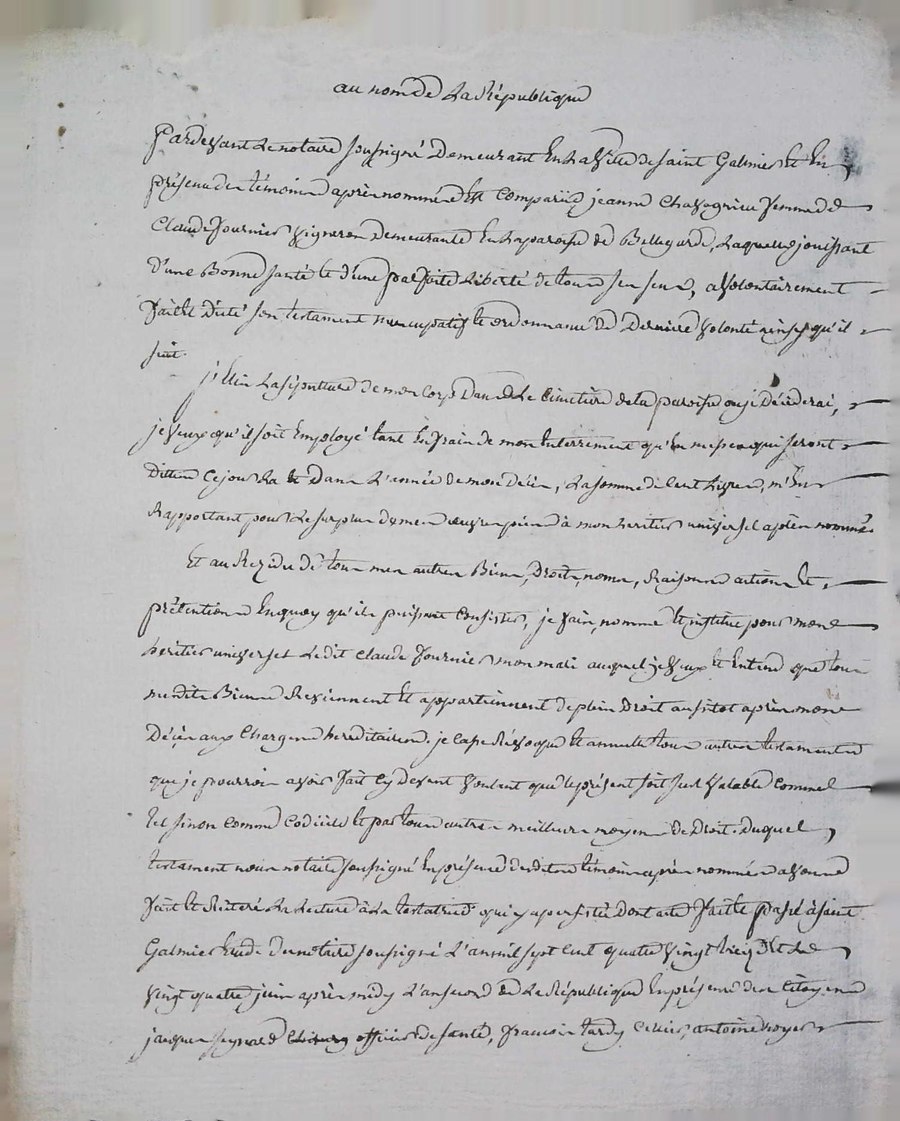 au nom de La République
Pardevant Le notaire soussigné Demeurant En La Ville de saint Galmier Et En
présence des témoins après nommés Est Comparüe jeanne Chavagnieu femme de
Claude fournier Vigneron demeurante En La paroisse de Bellegarde, Laquelle jouissant
d'une Bonne santé Et d'une parfaite Liberté de tous ses sens, a Volontairement
fait Et dicté son testament nuncupatif Et ordonnance de Derniere Volonté ainsy qu'il
suit.
j'Elis La sépulture de mon Corps Dans Le Cimetière de la paroisse ou je Décéderai,
je Veux qu'il soit Employé tant En frais de mon Enterrement qu'En messes qui seront
Dittes Ce jour La Et Dans L'année de mon Décès, La somme de Cent Livres, m'En
Rapportant pour Le surplus de mes oeuvres pies à mon heritier universel après nommé.
Et au Rezidu de tous mes autres Biens, Droits, noms, Raisons actions Et
prétentions Enquoy qu'ils puissent Consister, je fais, nomme Et institue pour mon
heritier universel Ledit Claude fournier mon mari auquel je Veux Et Entend que tous
mesdits Biens Reviennent Et appartiennent de plein Droit aussitot après mon
Décès aux Charges hereditaires. je Casse Révoque Et annulle tous autres testaments
que je pourrois avoir fait Cy devant Voulant que le présent soit seul Valable Comme
tel sinon Comme Codicile Et par tous autres meilleurs moyens de Droit. Duquel
testament nous notaire soussigné En présence desdits témoins après nommés avons
fait Et Réiteré La Lecture à La testatrice qui y a persisté Dont acte fait Et passé à saint
Galmier Etude du notaire soussigné L'an mil sept Cent quatre Vingt treize Et Le
Vingt quatre juin après midy L'an second de La République En présence des Citoyens
jacques officier de santé, françois tardy Cellier, antoine